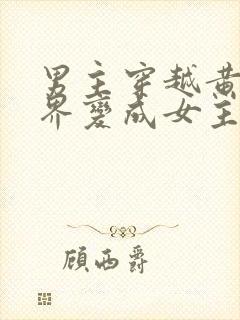 男主穿越黄
界变成女主
顾西爵